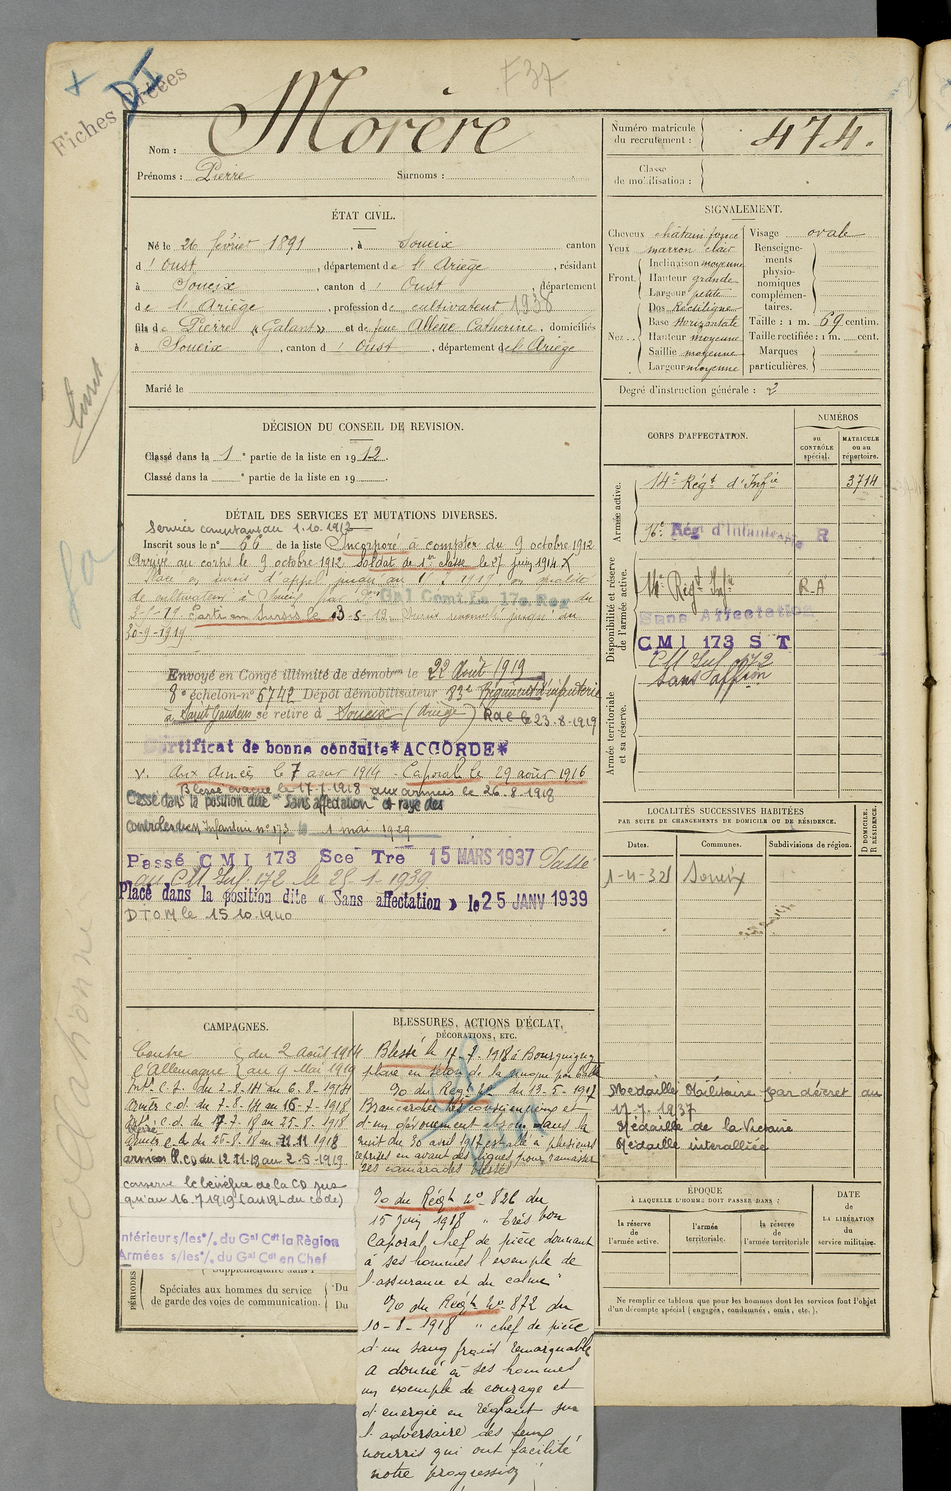 Fiches Créées
F37
Nom : Morère
Prénoms : Pierre Surnoms :
Numéro matricule du recrutement : 474.
Classe de mobilisation :
ÉTAT CIVIL.
Né le 26 février 1891, à Soueix canton
d' Oust, département de l'Ariège, résidant
à Soueix, canton d' Oust département
de l'Ariège, profession de cultivateur 1938
fils de Pierre « Galant » et de feue Catherine, domiciliés
à Soueix, canton d' Oust, département de l'Ariège
Marié le
SIGNALEMENT.
Cheveux châtain foncé
Yeux marron clair
Front. Inclinaison moyenne
Hauteur grande
Largeur petite
Nez.. Dos Rectiligne
Base Horizontale
Hauteur moyenne
Saillie moyenne
Largeur moyenne
Visage ovale
Renseignements physionomiques complémentaires.
Taille : 1 m. 69 centim.
Taille rectifiée : 1 m. cent.
Marques particulières.
Degré d'instruction générale : 2
DÉCISION DU CONSEIL DE REVISION.
Classé dans la 1e partie de la liste en 1912.
Classé dans la e partie de la liste en 19
DÉTAIL DES SERVICES ET MUTATIONS DIVERSES.
Services comptant du 1.10.1912
Inscrit sous le n° 66 de la liste Incorporé à compter du 9 octobre 1912
Arrivé au corps le 9 octobre 1912 Soldat de 1re classe le 27 juin 1914 X
30-9-1919
Envoyé en Congé illimité de démobon le 22 Août 1919
8e échelon n° 6742 Dépôt démobilisateur 83e Régiment d'infanterie
à Saint Gaudens se retire à Soueix (Ariège) Rac le 23.8.1919
Certificat de bonne conduite *ACCORDÉ*
V. Aux armées le 7 août 1914 - Caporal le 29 août 1916
Blessé évacué le 17-7-1918 aux armées le 26.8.1918
Classé dans la position dite "Sans affectation" et rayé des
contrôles du CM Infanterie n° 173 le 1 mai 1929
Passé CMI 173 Sce Tre 15 MARS 1937 Passé
au CM Inf. 172 le 25-1-1939
Placé dans la position dite « Sans affectation » le 25 JANV 1939
DTOM le 15.10.1940
CORPS D'AFFECTATION.
NUMÉROS
au CONTRÔLE spécial.
MATRICULE ou au répertoire.
Armée active.
14e Régt d'Infie 3714
Régt d'Infanterie R
Disponibilité et réserve de l'armée active.
14e Régt Infie R-A
Sans Affectation
CMI 173 S T
CM Inf 172
Sans affon
Armée territoriale et sa réserve.
LOCALITÉS SUCCESSIVES HABITÉES
PAR SUITE DE CHANGEMENTS DE DOMICILE OU DE RÉSIDENCE.
Dates. Communes. Subdivisions de région. D DOMICILE. R RÉSIDENCE.
Soueix
CAMPAGNES.
Contre du 2 août 1914
l'Allemagne au 9 Mai 1919
Intr c.s. du 2-8-14 au 6-8-1914
Armées c.d. du 7-8-14 au 16-7-1918
c.d. du 17-7-18 au 25-8-1918
Armées c.d. du 26-8-18 au 11.11.1918
armées CD du 12.11.18 au 2-5-1919
conserve le bénéfice de la CD jus
qu'au 16.7.1919 (art 191 du code)
Intérieur s/les%o du Gal Cdt la Région
Armées s/les%o du Gal Cdt en Chef
PÉRIODES
Supplémentaire dans l'
Spéciales aux hommes du service de garde des voies de communication. Du
Du
BLESSURES, ACTIONS D'ÉCLAT, DÉCORATIONS, ETC.
Blessé le 17-7-1918 à Bourguigny
Jo du Régt N° du 13-5-1917
Brancardier très consciencieux et
d'un dévouement absolu, dans la
nuit du 30 avril 1917 est allé à plusieurs
reprises en avant des lignes, pour ramasser
ses camarades blessés
Jo du Régt N° 826 du
15 Juin 1918 " Très bon
Caporal chef de pièce donnant
à ses hommes l'exemple de
l'assurance et du calme "
Jo du Régt N° 872 du
10-8-1918 " chef de pièce
d'un sang froid remarquable
a donné à ses hommes
un exemple de courage et
d'énergie en réglant sur
l'adversaire des feux
nourris qui ont facilité
notre progression
Médaille Militaire par décret du
17.7.1937
Médaille de la Victoire
Médaille interalliée
ÉPOQUE
À LAQUELLE L'HOMME DOIT PASSER DANS :
la réserve de l'armée active. l'armée territoriale. la réserve de l'armée territoriale
DATE de LA LIBÉRATION du service militaire.
Ne remplir ce tableau que pour les hommes dont les services font l'objet
d'un décompte spécial (engagés, condamnés, omis, etc.).